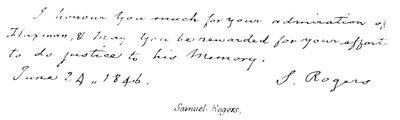 I honour you much for your admiration of
Flaxman, & may you be rewarded for your effort
to do justice to his Memory.
June 24,, 1846. S. Rogers
Samuel Rogers.